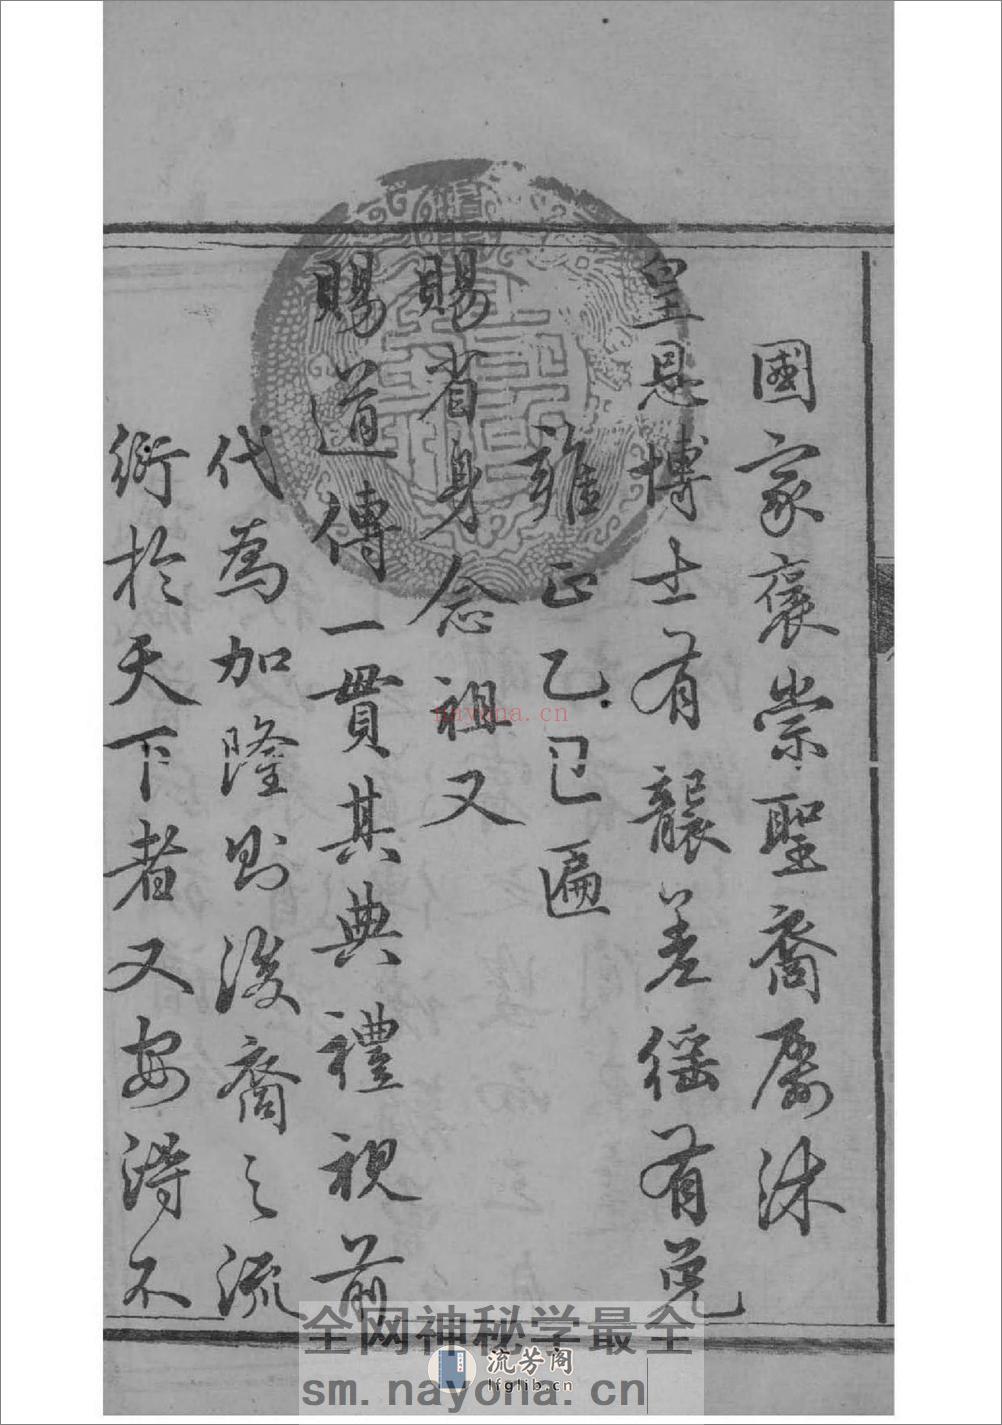 國家褒崇聖裔屢沐
皇恩博士有襲差徭有免
雍正乙巳匾
賜省身念祖又
賜道傳一貫其典禮視前
代為加隆則後裔之流
衍於天下者又安得不
nayona.cn
全网神秘学最全
流芳阁
lfglib.cn
sm.nayona.cn